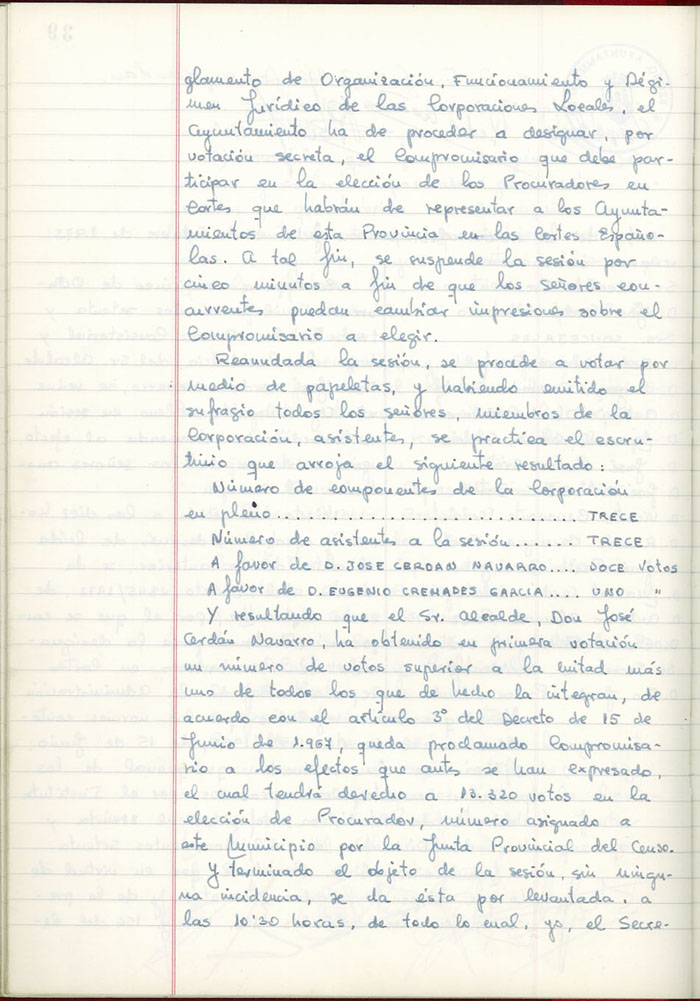 glamento de Organización, Funcionamiento y Régi-
men Jurídico de las Corporaciones Locales, el
Ayuntamiento ha de proceder a designar, por
votación secreta, el Compromisario que debe par-
ticipar en la elección de los Procuradores en
Cortes que habrán de representar a los Ayunta-
mientos de esta Provincia en las Cortes Españo-
las. A tal fin, se suspende la sesión por
cinco minutos a fin de que los señores con-
currentes puedan cambiar impresiones sobre el
Compromisario a elegir.
Reanudada la sesión, se procede a votar por
medio de papeletas, y habiendo emitido el
sufragio todos los señores, miembros de la
Corporación, asistentes, se practica el escru-
tinio que arroja el siguiente resultado:
Número de componentes de la Corporación
en pleno.................................. TRECE
Número de asistentes a la sesión....... TRECE
A favor de D. JOSE CERDAN NAVARRO.... DOCE votos
A favor de D. EUGENIO CREMADES GARCIA.... UNO "
Y resultando que el Sr. Alcalde, Don José
Cerdán Navarro, ha obtenido en primera votación
un número de votos superior a la mitad más
uno de todos los que de hecho la integran, de
acuerdo con el artículo 3º del Decreto de 15 de
Junio de 1.967, queda proclamado Compromisa-
rio a los efectos que antes se han expresado,
el cual tendrá derecho a 13.320 votos en la
elección de Procurador, número asignado a
este Municipio por la Junta Provincial del Censo.
Y terminado el objeto de la sesión, sin ningu-
na incidencia, se da ésta por levantada, a
las 10'30 horas, de todo lo cual, yo, el Secre-